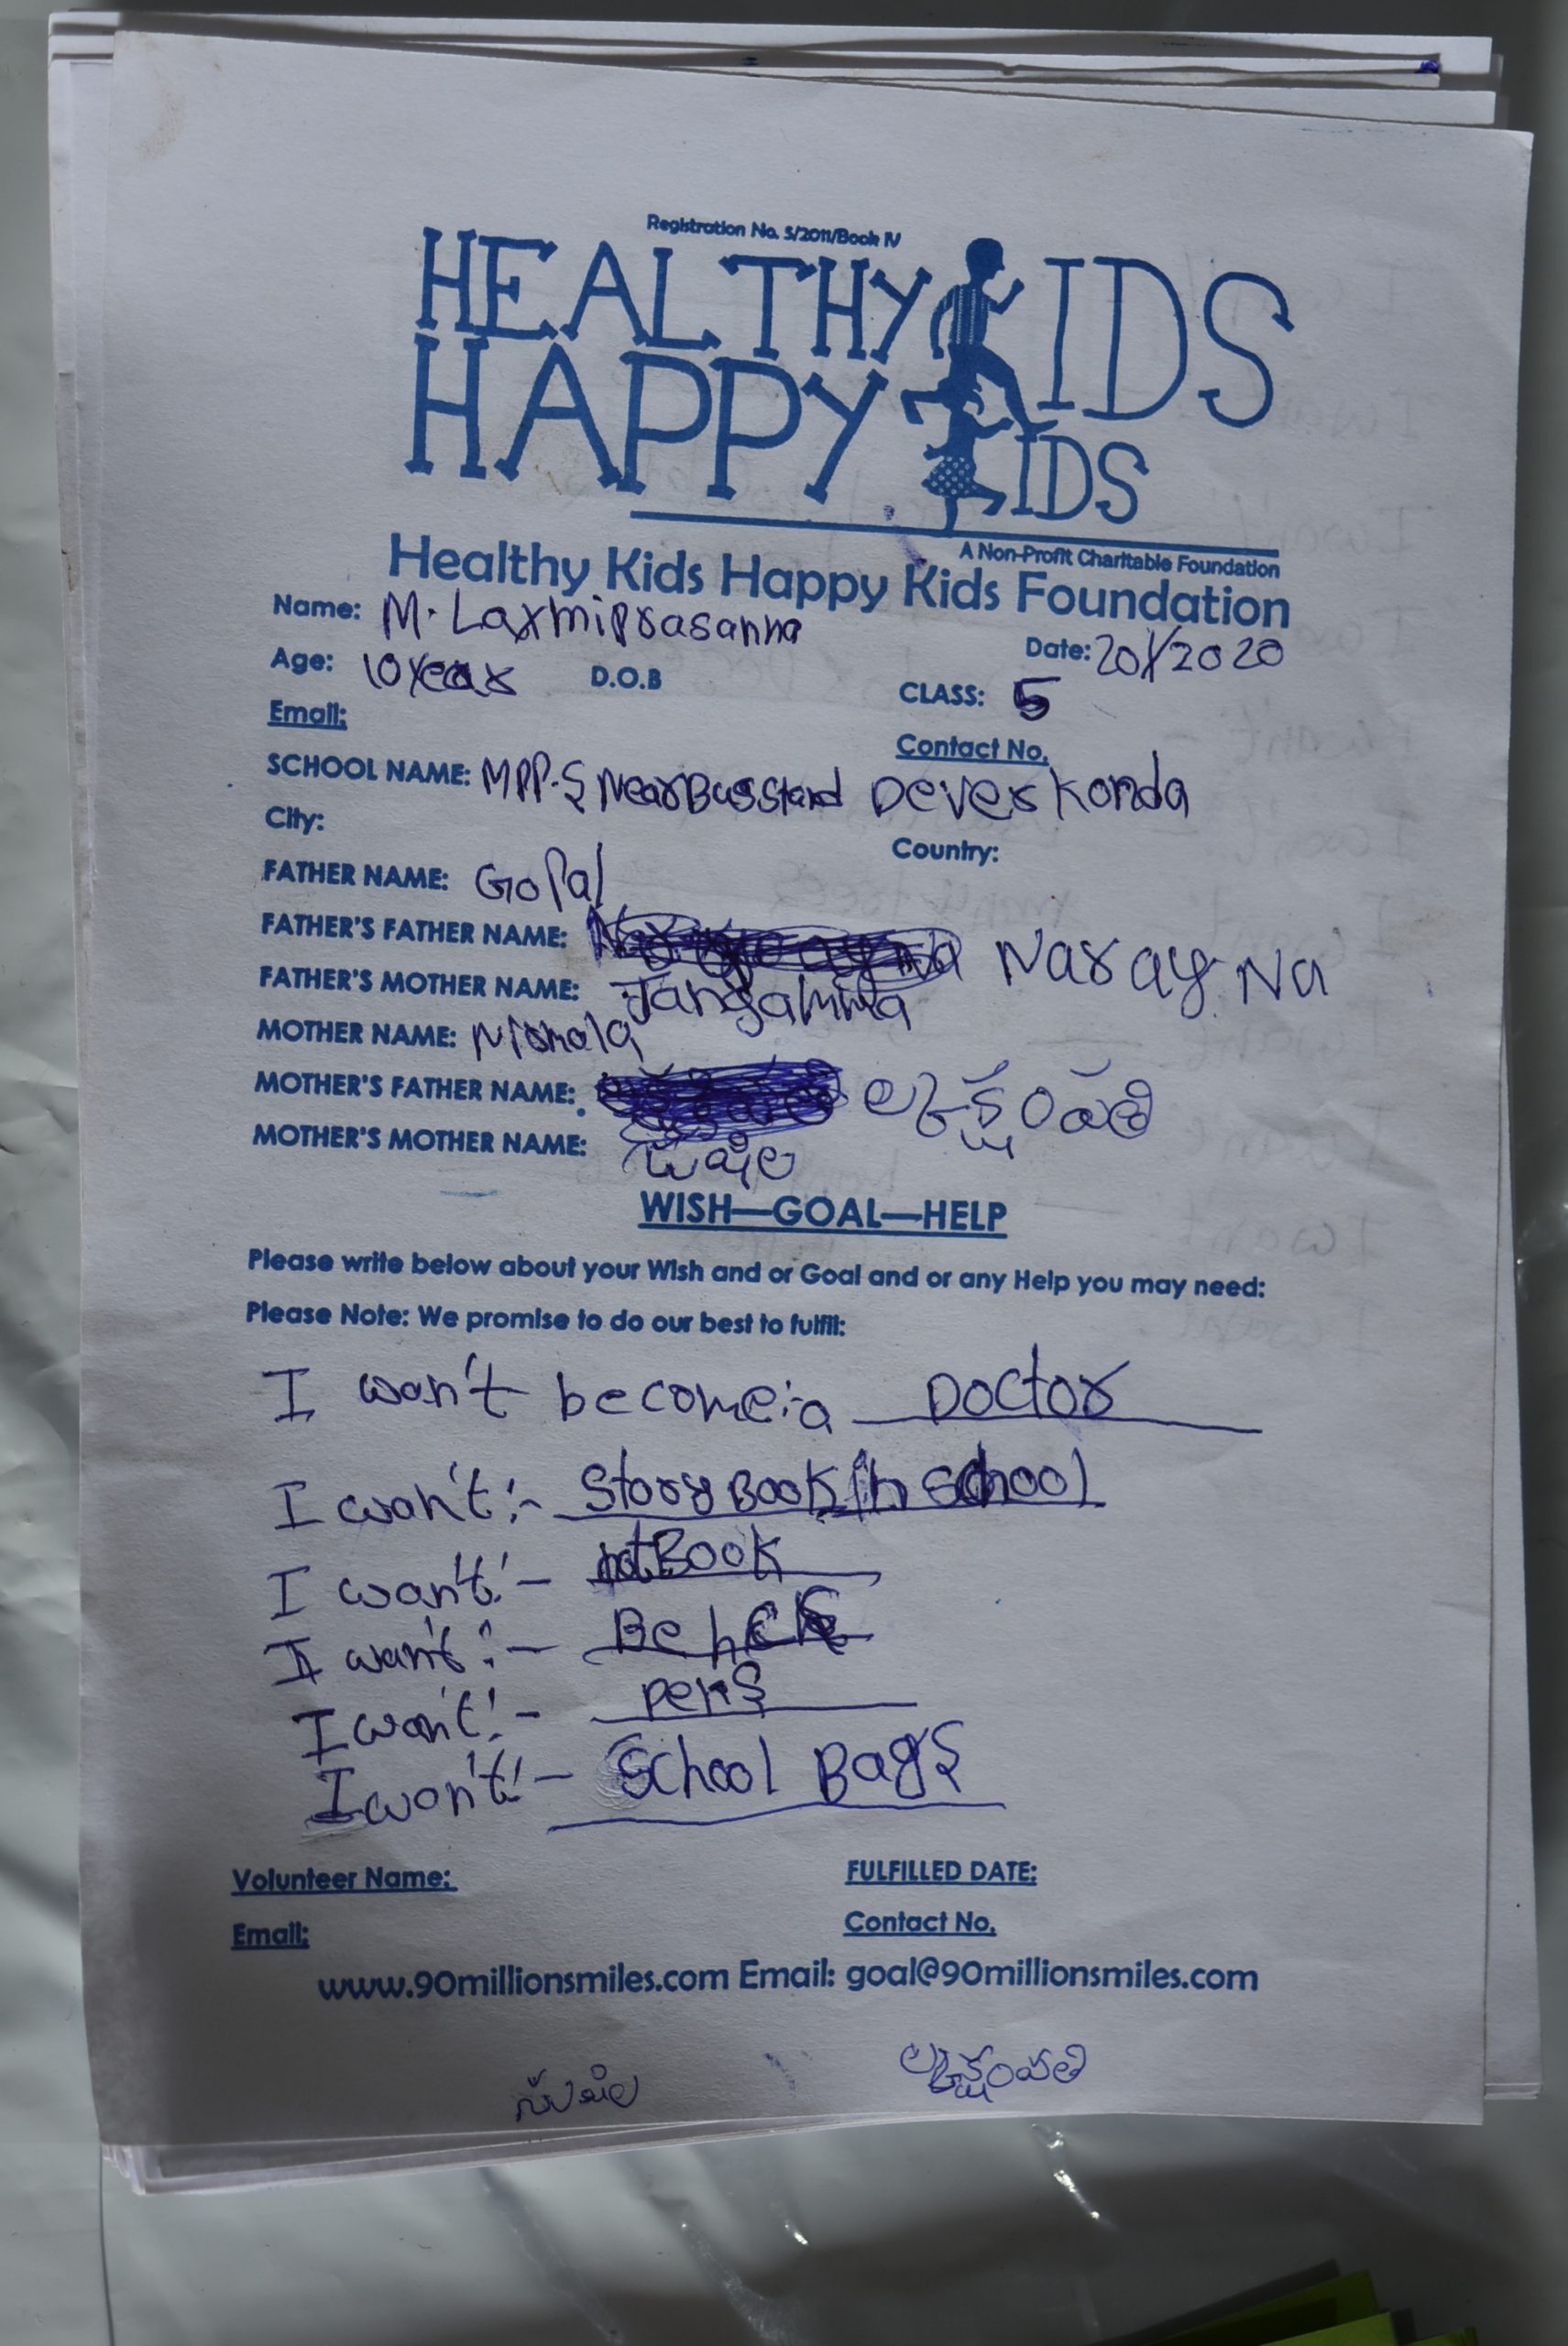 Registration No. 5/2011/Book IV
HEALTHY KIDS
HAPPY KIDS
A Non-Profit Charitable Foundation
Healthy Kids Happy Kids Foundation
Name: M. Laxmiprasanna
Date: 20/1/2020
Age: 10 years D.O.B
CLASS: 5
Email:
Contact No.
SCHOOL NAME: MPP.S Near Bus Stand Deverkonda
City:
Country:
FATHER NAME: Gopal
FATHER'S FATHER NAME: Naray Na
FATHER'S MOTHER NAME: Jangamma
MOTHER NAME: Nirmala
MOTHER'S FATHER NAME:
MOTHER'S MOTHER NAME:
WISH—GOAL—HELP
Please write below about your Wish and or Goal and or any Help you may need:
Please Note: We promise to do our best to fulfil:
I wan't become:-a Doctor
I wan't:- Story Book in school
I wan't:- notBook
I wan't:-
I wan't:- pens
I wan't:- School Bags
Volunteer Name:
FULFILLED DATE:
Email:
Contact No.
www.90millionsmiles.com Email: goal@90millionsmiles.com